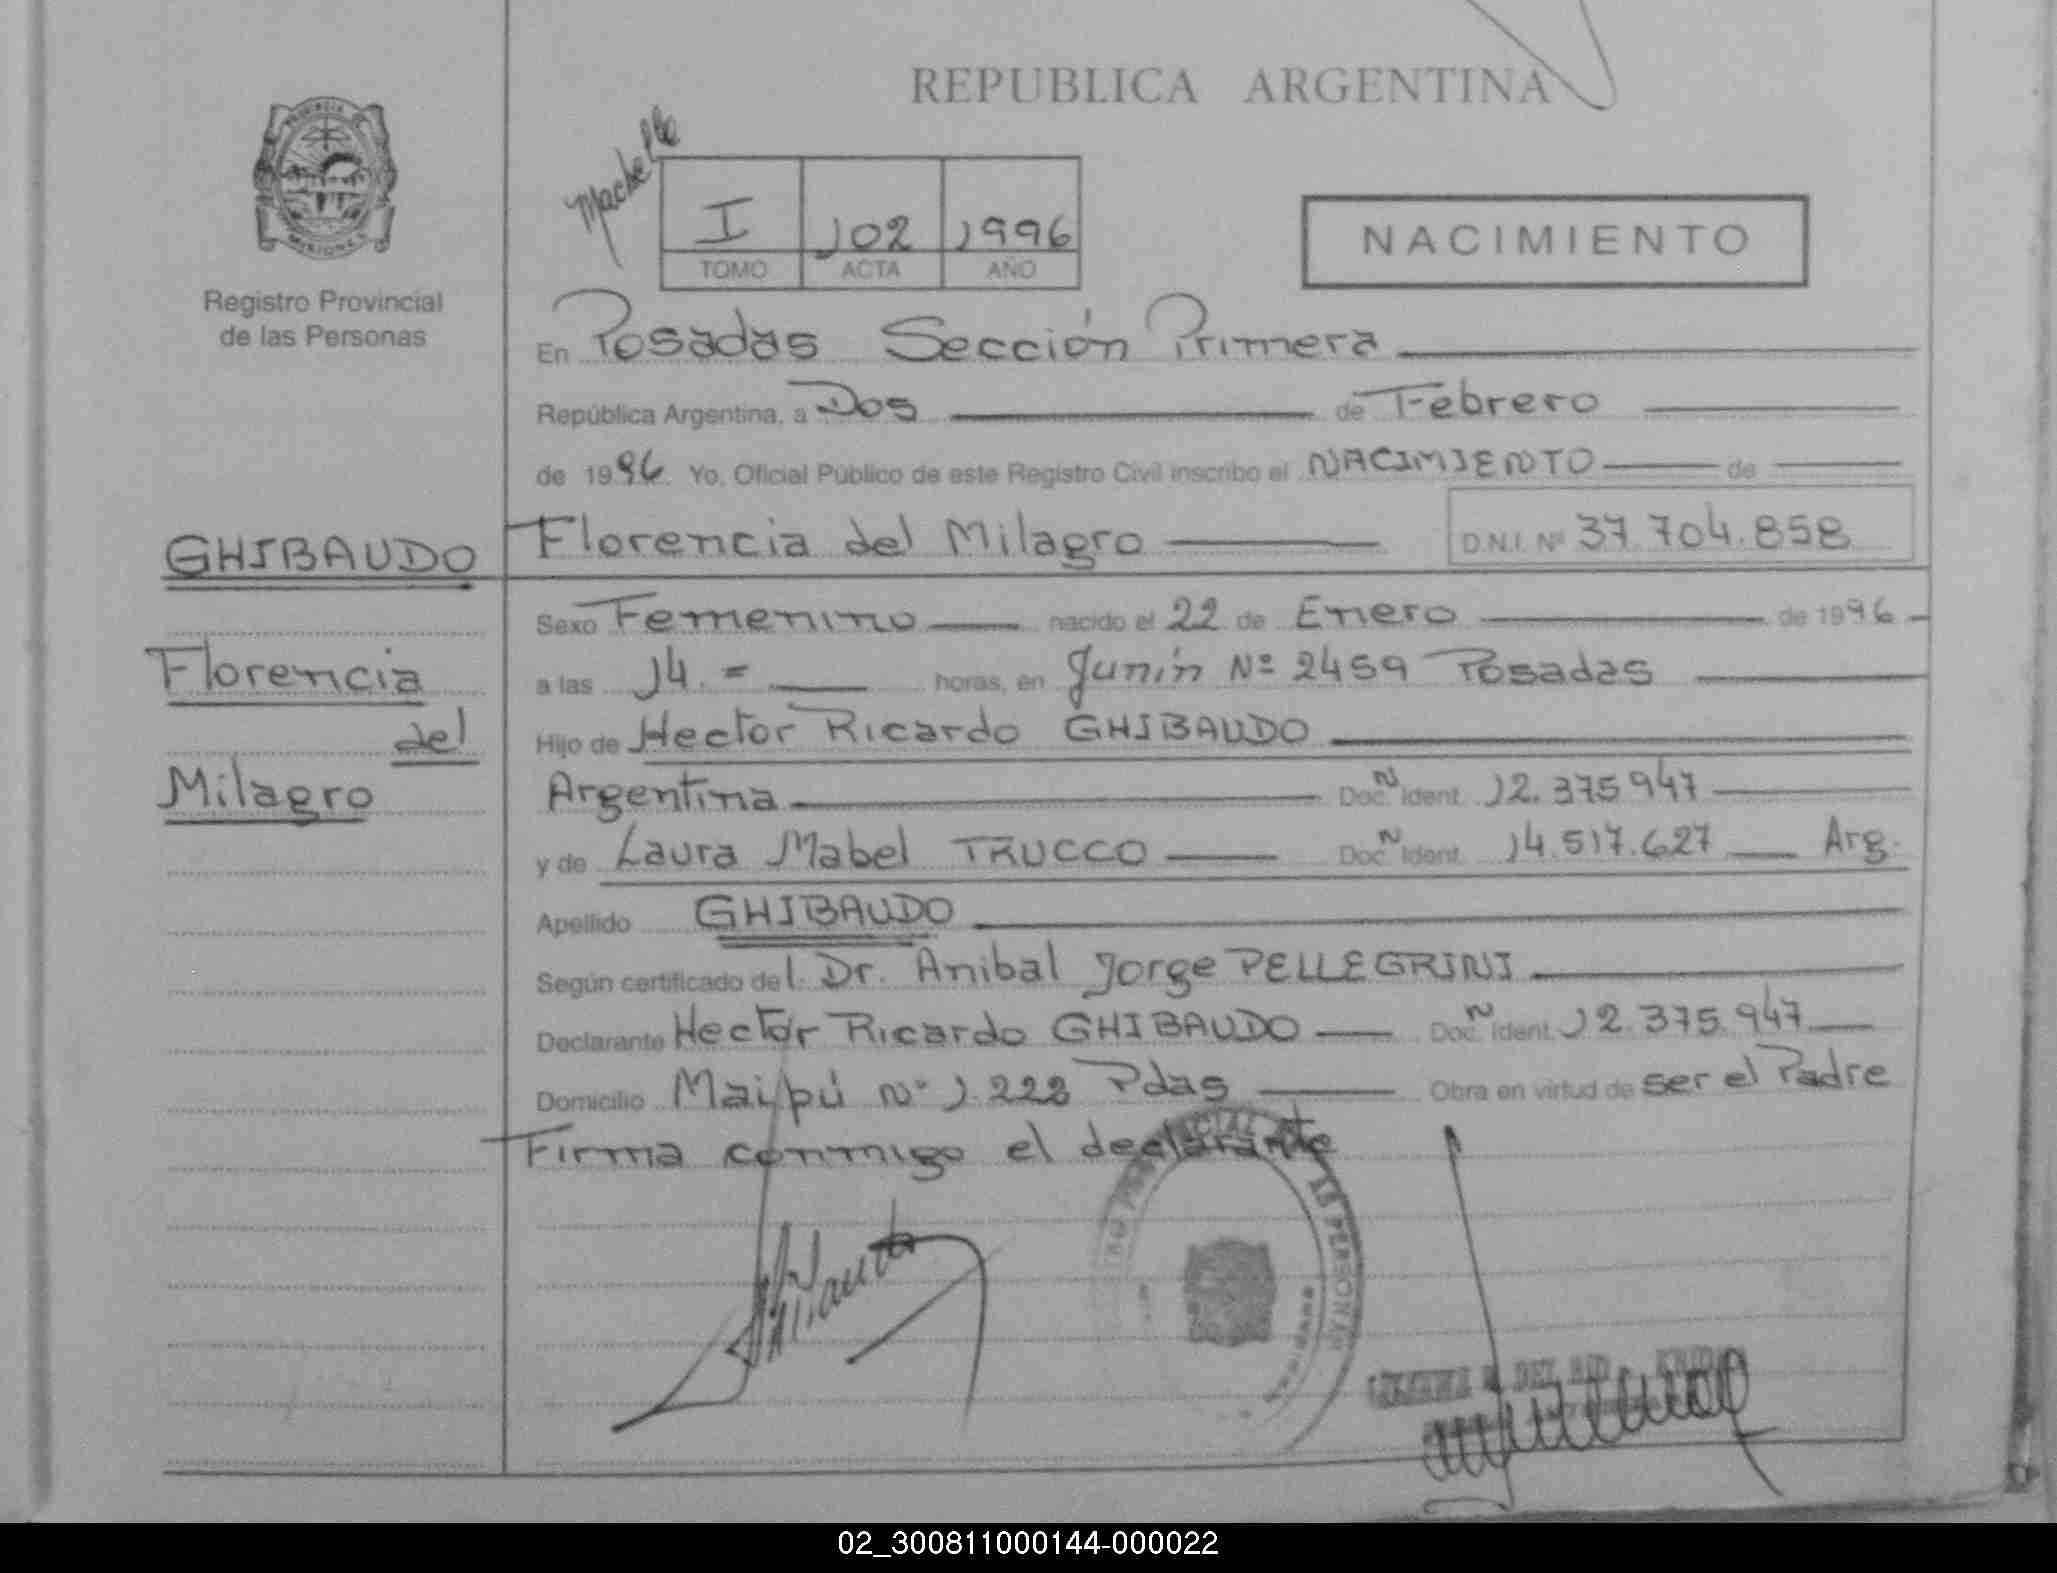 REPUBLICA ARGENTINA
PROVINCIA DE
MISIONES
Registro Provincial
de las Personas
I 102 1996
TOMO ACTA AÑO
NACIMIENTO
En Posadas Sección Primera
República Argentina, a Dos de Febrero
de 1996. Yo, Oficial Público de este Registro Civil inscribo el NACIMIENTO de
GHIBAUDO
Florencia del Milagro D.N.I. Nº 37.704.858
Sexo Femenino nacido el 22 de Enero de 1996
Florencia
a las 14.= horas, en Junín Nº 2459 Posadas
del
Hijo de Hector Ricardo GHIBAUDO
Milagro
Argentina Doc. Ident. 12.375.947
y de Laura Mabel TRUCCO Doc. Ident. 14.517.627 Arg.
Apellido GHIBAUDO
Según certificado del Dr. Anibal Jorge PELLEGRINI
Declarante Hector Ricardo GHIBAUDO Doc. Ident. 12.375.947
Domicilio Maipú Nº 1.222 Pdas Obra en virtud de ser el Padre
Firma conmigo el declarante
PERSONAS
02_300811000144-000022